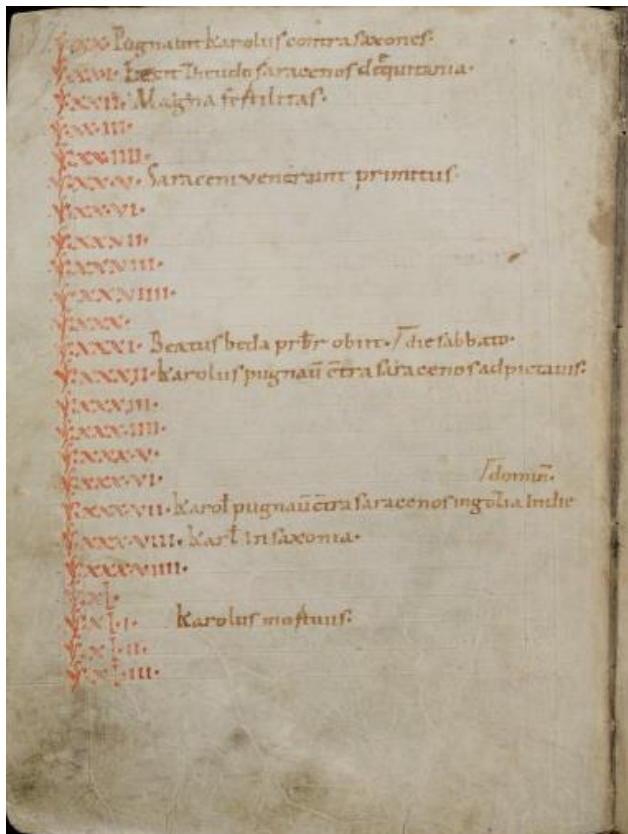 xx· Pugnauit karolus contra saxones·
xxi· Eiecit Theudo saracenos de equitania·
xxii· Magna fertilitas·
xx·iii·
xx·iiii·
xx·v· Saraceni venerunt primitus·
xx·vi·
xx·vii·
xx·viii·
xx·viiii·
xxx·
xxxi· Beatus beda prbr obiit· die sabbato·
xxxii· Karolus pugnau ctra saracenos ad pictauis·
xxx·iii·
xxx·iiii·
xxx·v·
xxx·vi· domin·
xxx·vii· karol pugnau ctra saracenos in gotia in die
xxx·viii· karl in saxonia·
xxx·viiii·
xL·
xL·i· karolus mortuus·
xL·ii·
xL·iii·